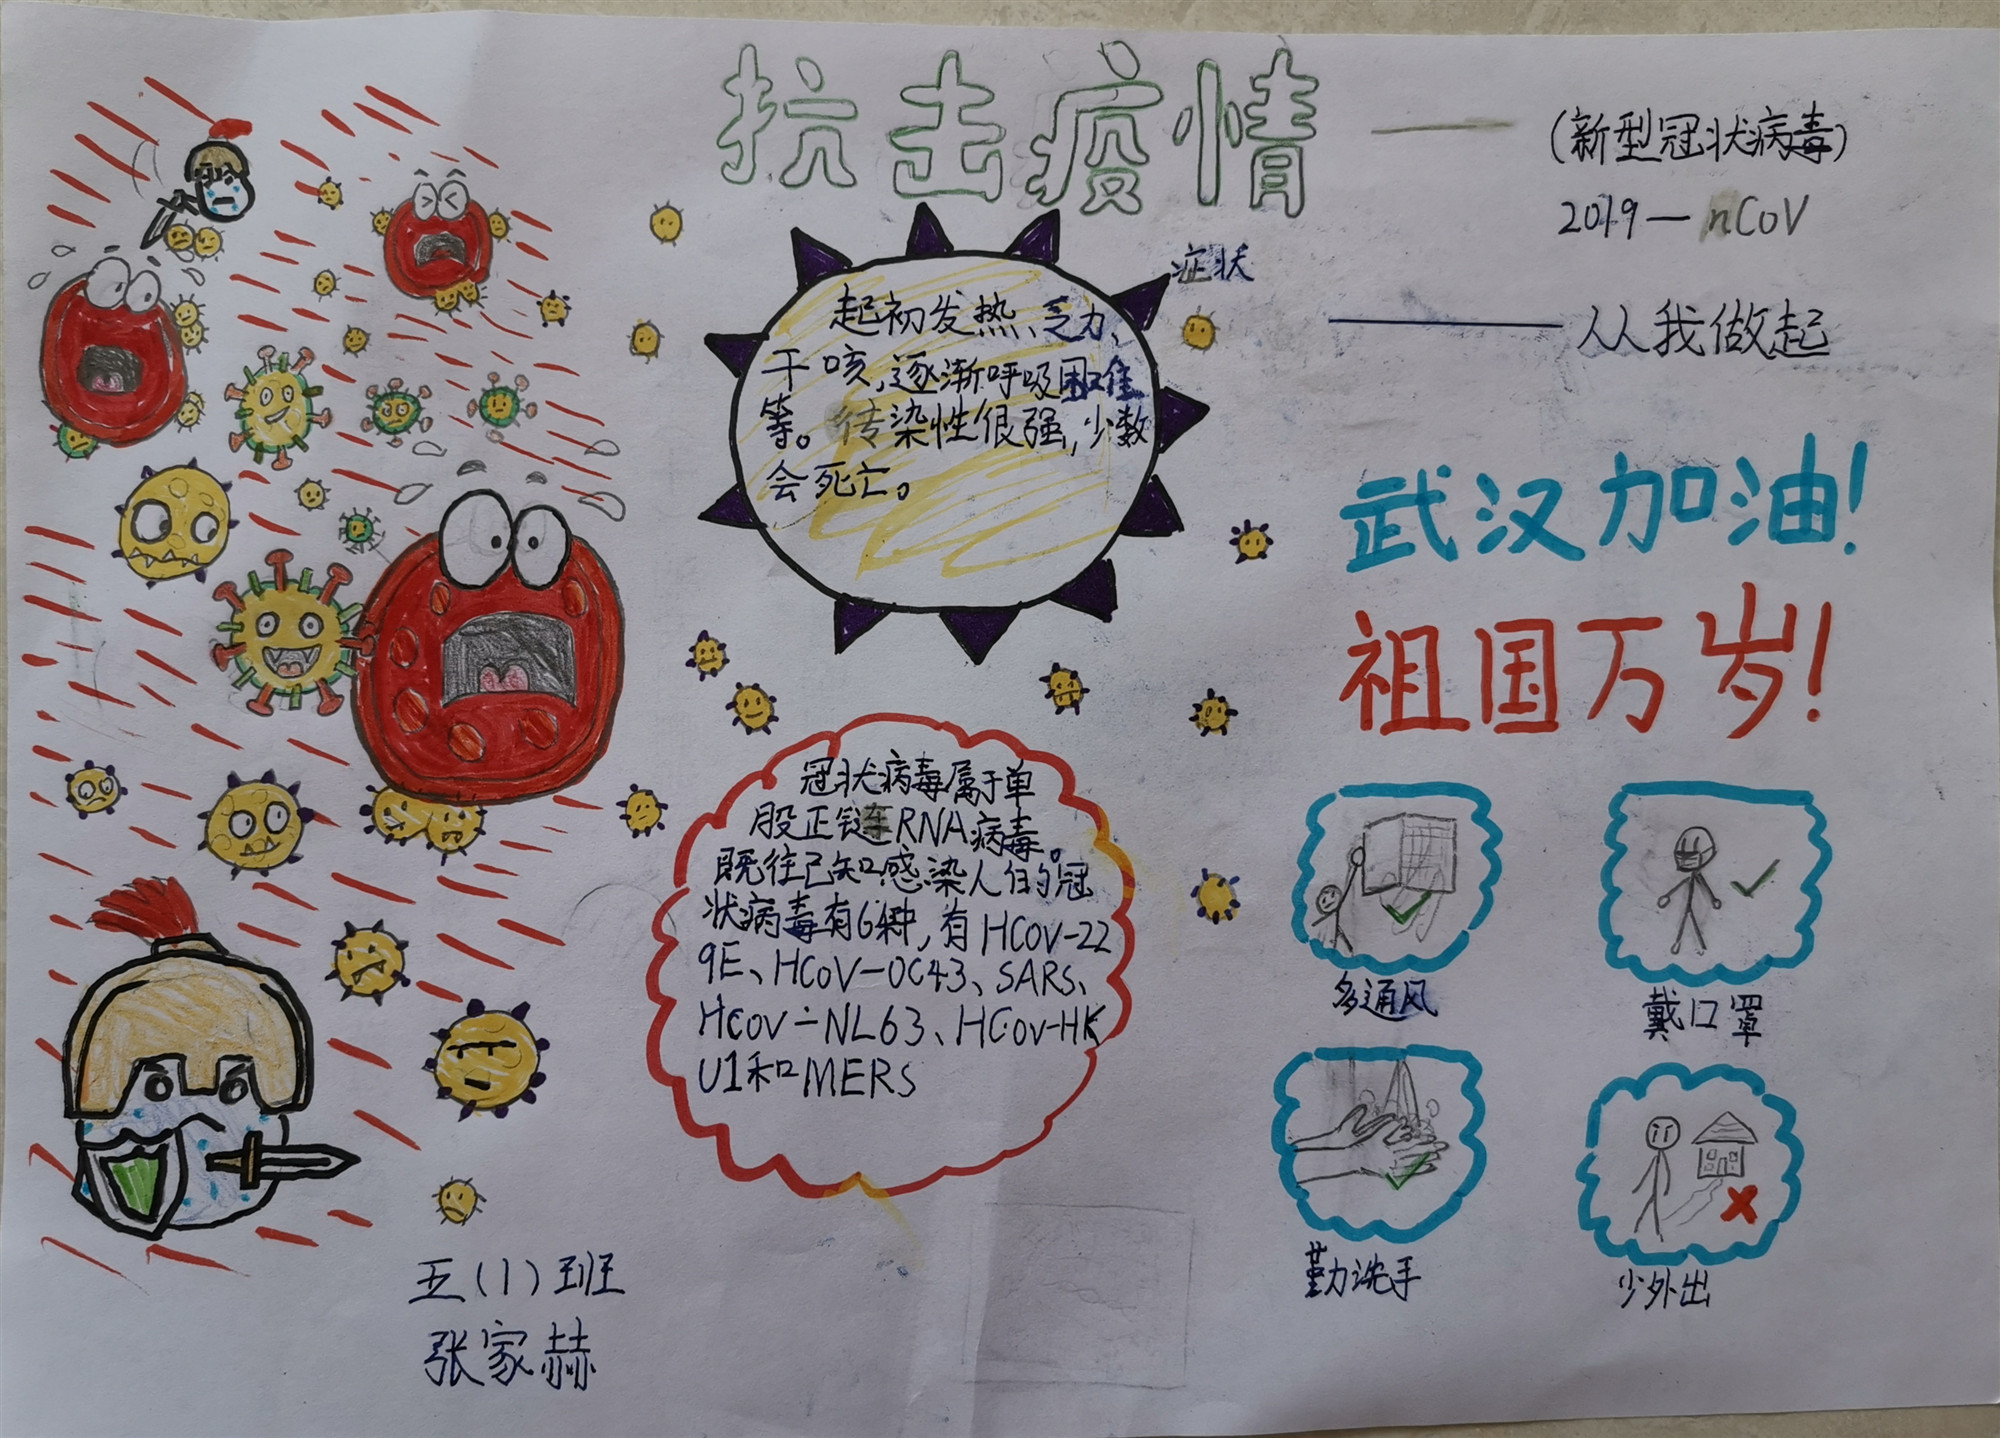 抗击疫情
——(新型冠状病毒)
2019—nCoV
——从我做起
症状
起初发热、乏力、
干咳,逐渐呼吸困难
等。传染性很强,少数
会死亡。
武汉加油!
祖国万岁!
冠状病毒属于单
股正链RNA病毒。
既往已知感染人的冠
状病毒有6种,有HCoV-22
9E、HCoV-OC43、SARs、
HCoV-NL63、HCoV-HK
U1和MERs
多通风
戴口罩
勤洗手
少外出
五(1)班
张家赫